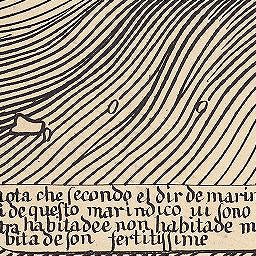 nota che secondo el dir de marin
i de questo marindico ui sono
habitade e non habitade m
bita de son fertitissime